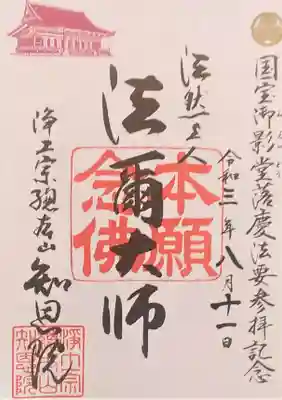 国宝御影堂落慶法要参拝記念
令和三年八月十一日
法然上人
法爾大師
本願念佛
浄土宗總本山知恩院
浄土宗總本山知恩院